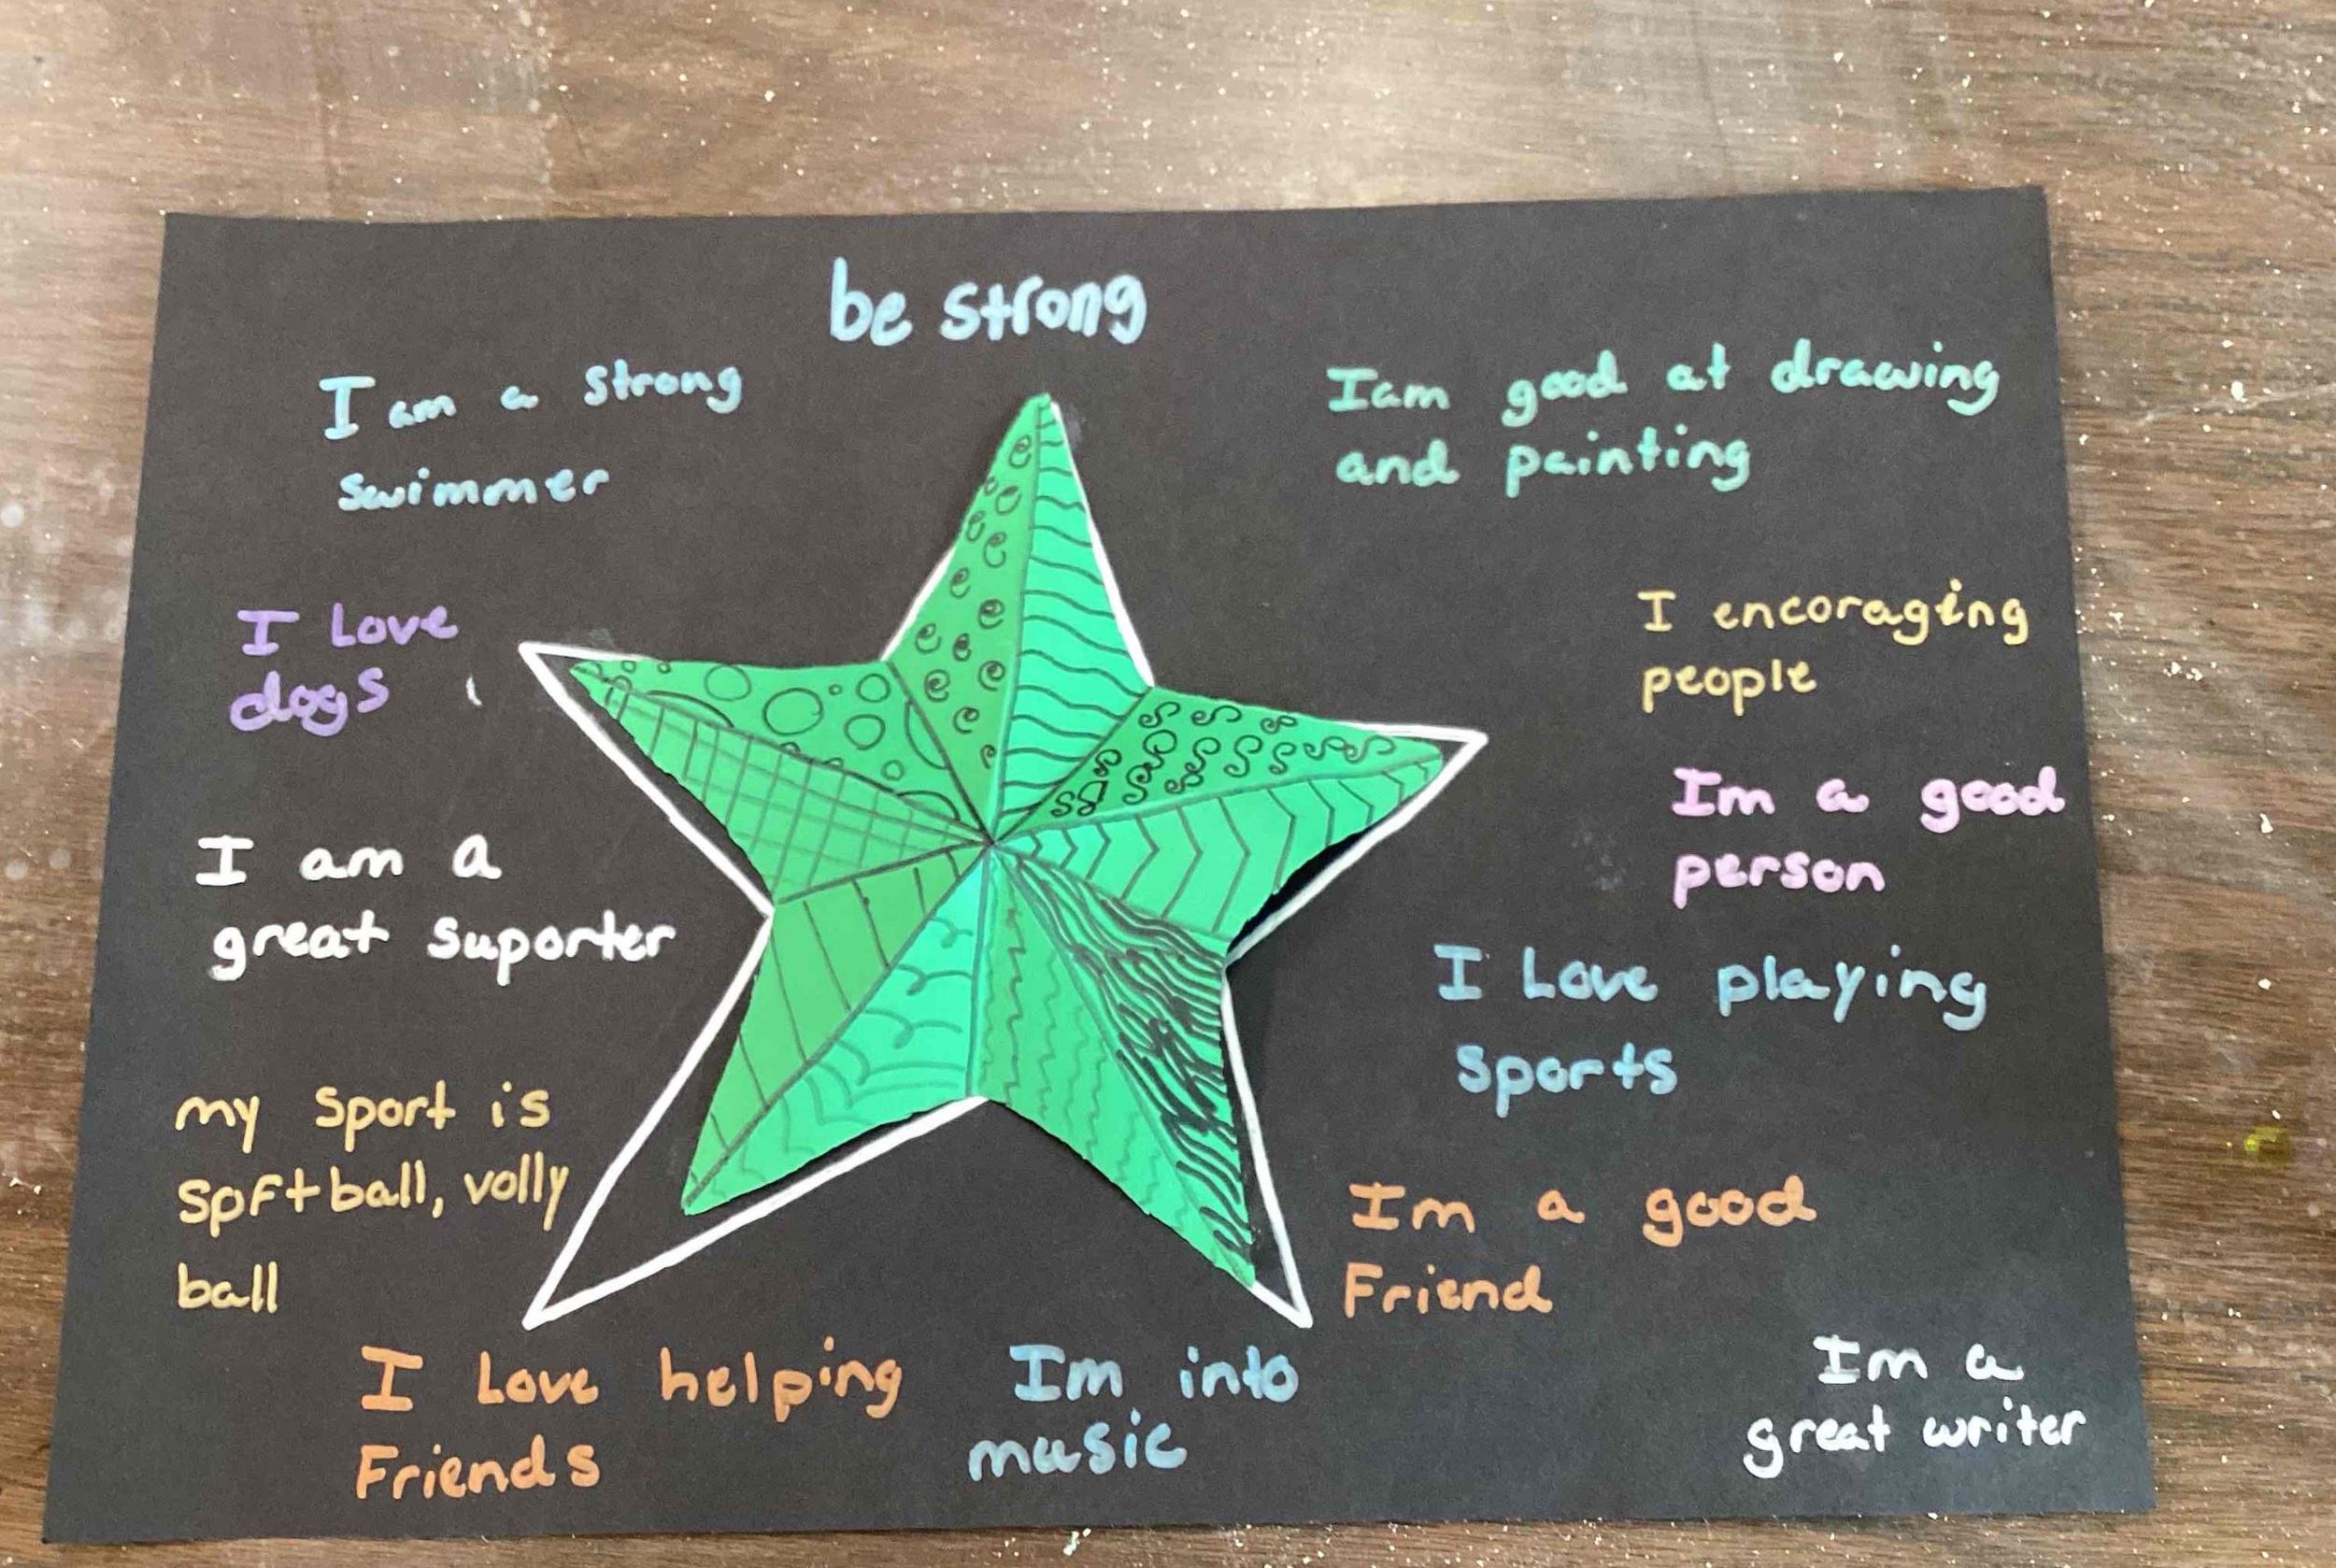 be strong
I am a strong
swimmer
I Love
dogs
I am a
great suporter
my sport is
softball, volly
ball
I Love helping
Friends
Im into
music
Iam good at drawing
and painting
I encoraging
people
Im a good
person
I Love playing
sports
Im a good
Friend
Im a
great writer